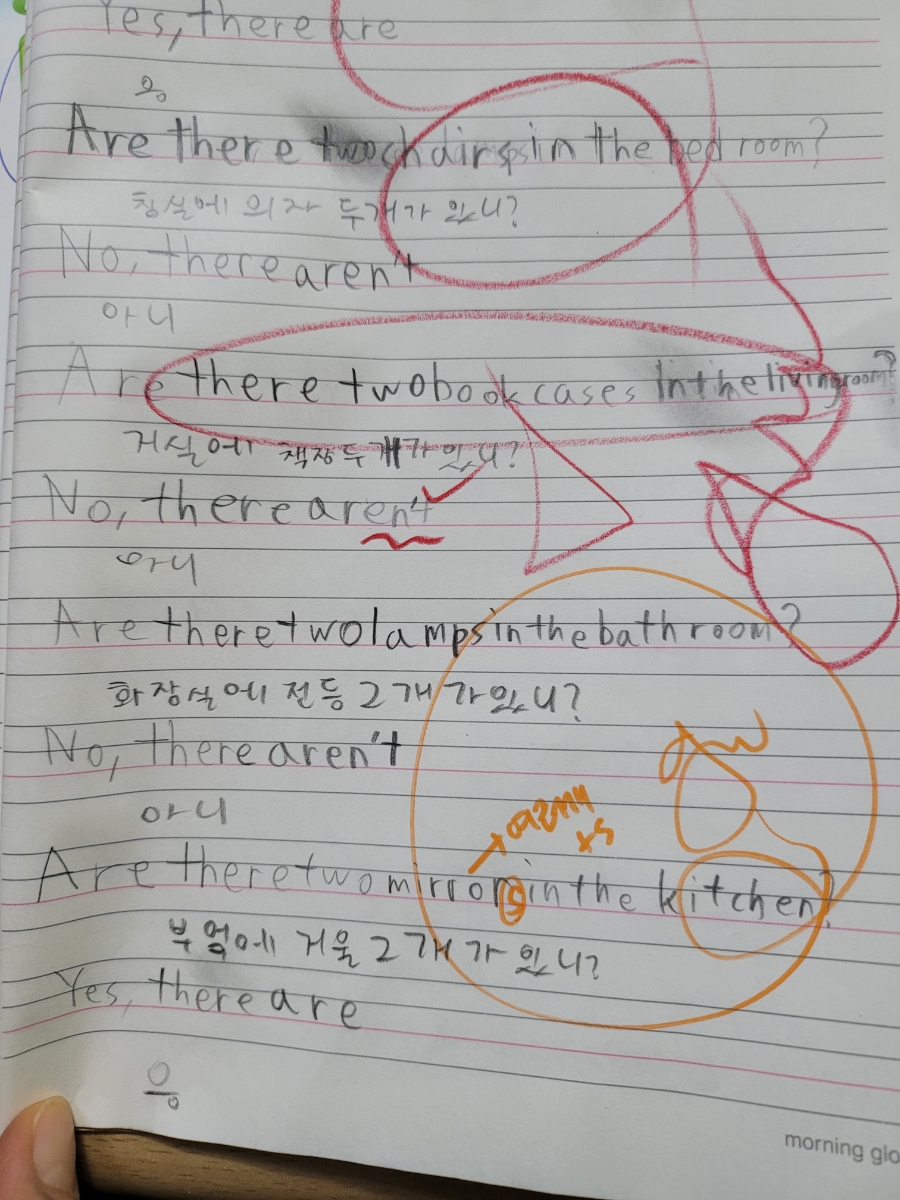 Yes, there are
응
Are there two chairs in the bed room?
침실에 의자 두개가 있니?
No, there aren't
아니
Are there two book cases in the living room?
거실에 책장 두 개가 있니?
No, there aren't
아니
Are there two lamps in the bathroom?
화장실에 전등 2개가 있니?
No, there aren't
아니
여러개
+s
Are there two mirrors in the kitchen?
부엌에 거울 2개가 있니?
Yes, there are
응
morning glo